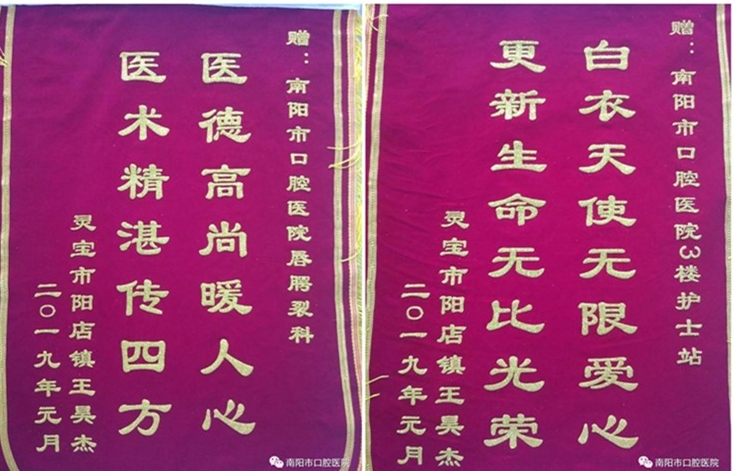 赠：南阳市口腔医院唇腭裂科
医德高尚暖人心
医术精湛传四方
灵宝市阳店镇王昊杰
二〇一九年元月
南阳市口腔医院
赠：南阳市口腔医院3楼护士站
白衣天使无限爱心
更新生命无比光荣
灵宝市阳店镇王昊杰
二〇一九年元月
南阳市口腔医院